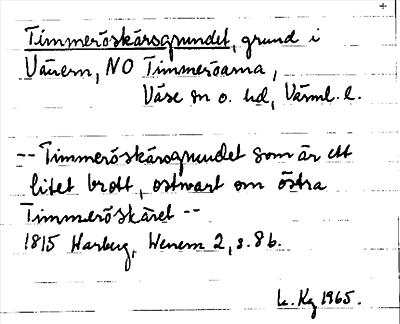 Timmeröskärsgrundet, grund i
Vänern, NO Timmeröarna,
Väse sn o. hd, Värml. l.
-- Timmeröskärsgrundet som är ett
litet brott, ostwart om östra
Timmeröskäret --
1815 Warberg, Wenern 2, s. 86.
L. Kg 1965.